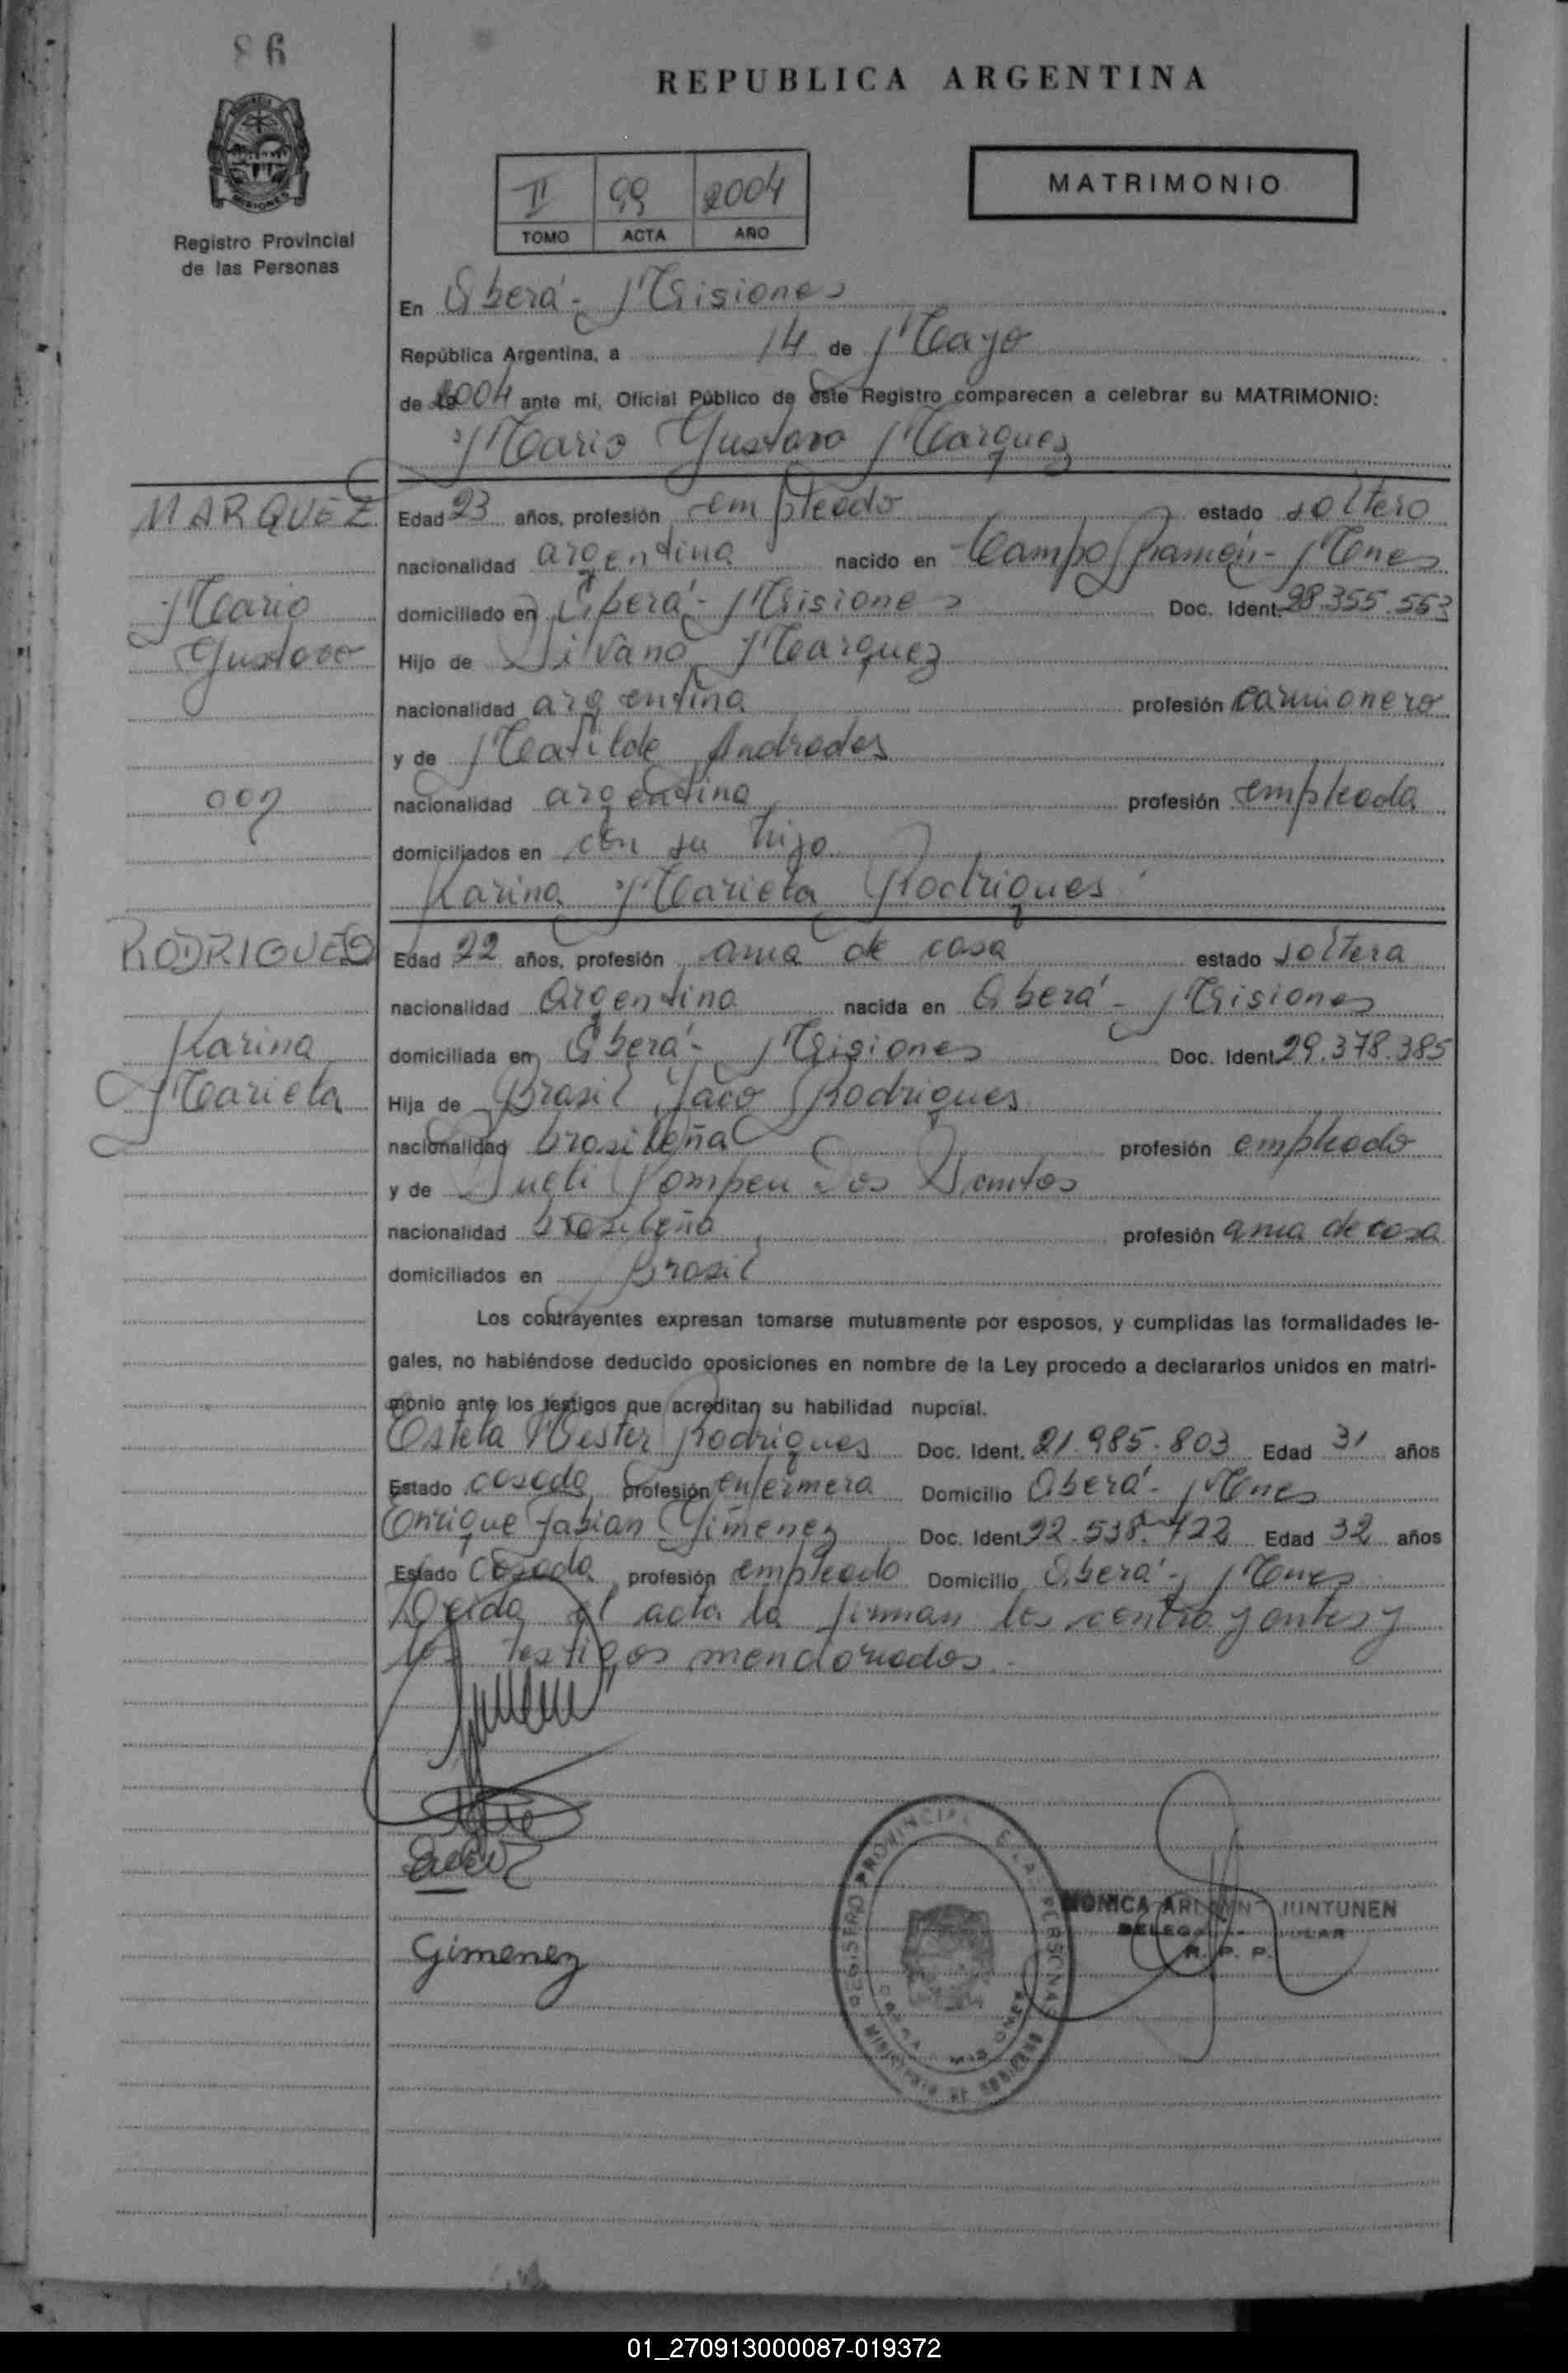 86
REPUBLICA ARGENTINA
MATRIMONIO
II 99 2004
TOMO ACTA AÑO
Registro Provincial
de las Personas
En Oberá - Misiones
República Argentina, a 14 de Mayo
de 2004 ante mí, Oficial Público de este Registro comparecen a celebrar su MATRIMONIO:
Mario Gustavo Marquez
MARQUEZ
Mario
Gustavo
007
Edad 23 años, profesión empleado estado soltero
nacionalidad argentina nacido en Campo Ramón - Mnes
domiciliado en Oberá - Misiones Doc. Ident. 28.355.553
Hijo de Silvano Marquez
nacionalidad argentina profesión camionero
y de Matilde Andrades
nacionalidad argentina profesión empleada
domiciliados en con su hijo
Karina Mariela Rodrigues
RODRIGUES
Karina
Mariela
Edad 22 años, profesión ama de casa estado soltera
nacionalidad Argentina nacida en Oberá - Misiones
domiciliada en Oberá - Misiones Doc. Ident. 29.378.385
Hija de Brasil Jaco Rodrigues
nacionalidad brasileña profesión empleado
y de Sueli Pompeu Dos Santos
nacionalidad brasileña profesión ama de casa
domiciliados en Brasil
Los contrayentes expresan tomarse mutuamente por esposos, y cumplidas las formalidades le-
gales, no habiéndose deducido oposiciones en nombre de la Ley procedo a declararlos unidos en matri-
monio ante los testigos que acreditan su habilidad nupcial.
Estela Rodrigues Doc. Ident. 21.985.803 Edad 31 años
Estado casada profesión enfermera Domicilio Oberá - Mnes
Enrique Fabian Gimenez Doc. Ident. 22.538.422 Edad 32 años
Estado Casado profesión empleado Domicilio Oberá - Mnes
Leida el acta la firman los contrayentes y
los testigos mencionados.
Gimenez
REGISTRO PROVINCIAL DE LAS PERSONAS
MINISTERIO DE GOBIERNO
MONICA HUNTUNEN
R. P. P.
01_270913000087-019372